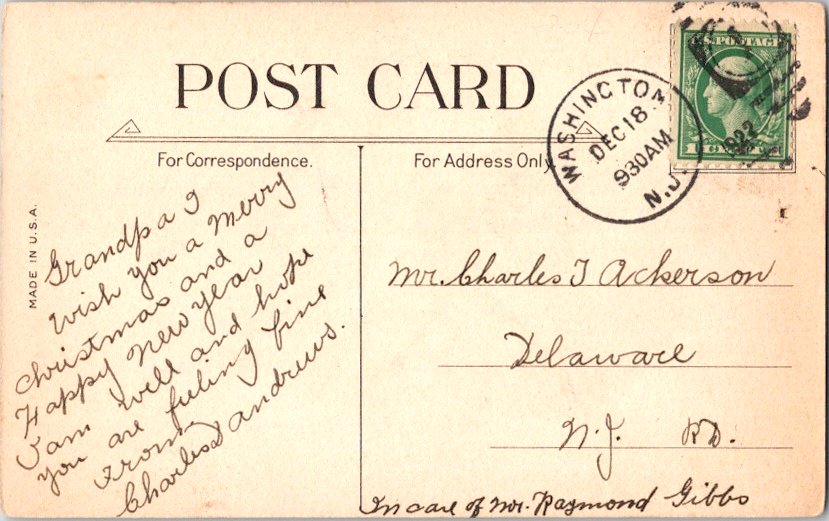 POST CARD
For Correspondence.
For Address Only.
MADE IN U.S.A.
U.S. POSTAGE
WASHINGTON
DEC 18
930AM
N.J.
1922
Grandpa I
wish you a merry
Christmas and a
Happy New Year
I am well and hope
you are feeling fine
From
Charles D andrews.
Mr. Charles T Ackerson
Delaware
N.J. RD.
In care of Mr. Raymond Gibbs